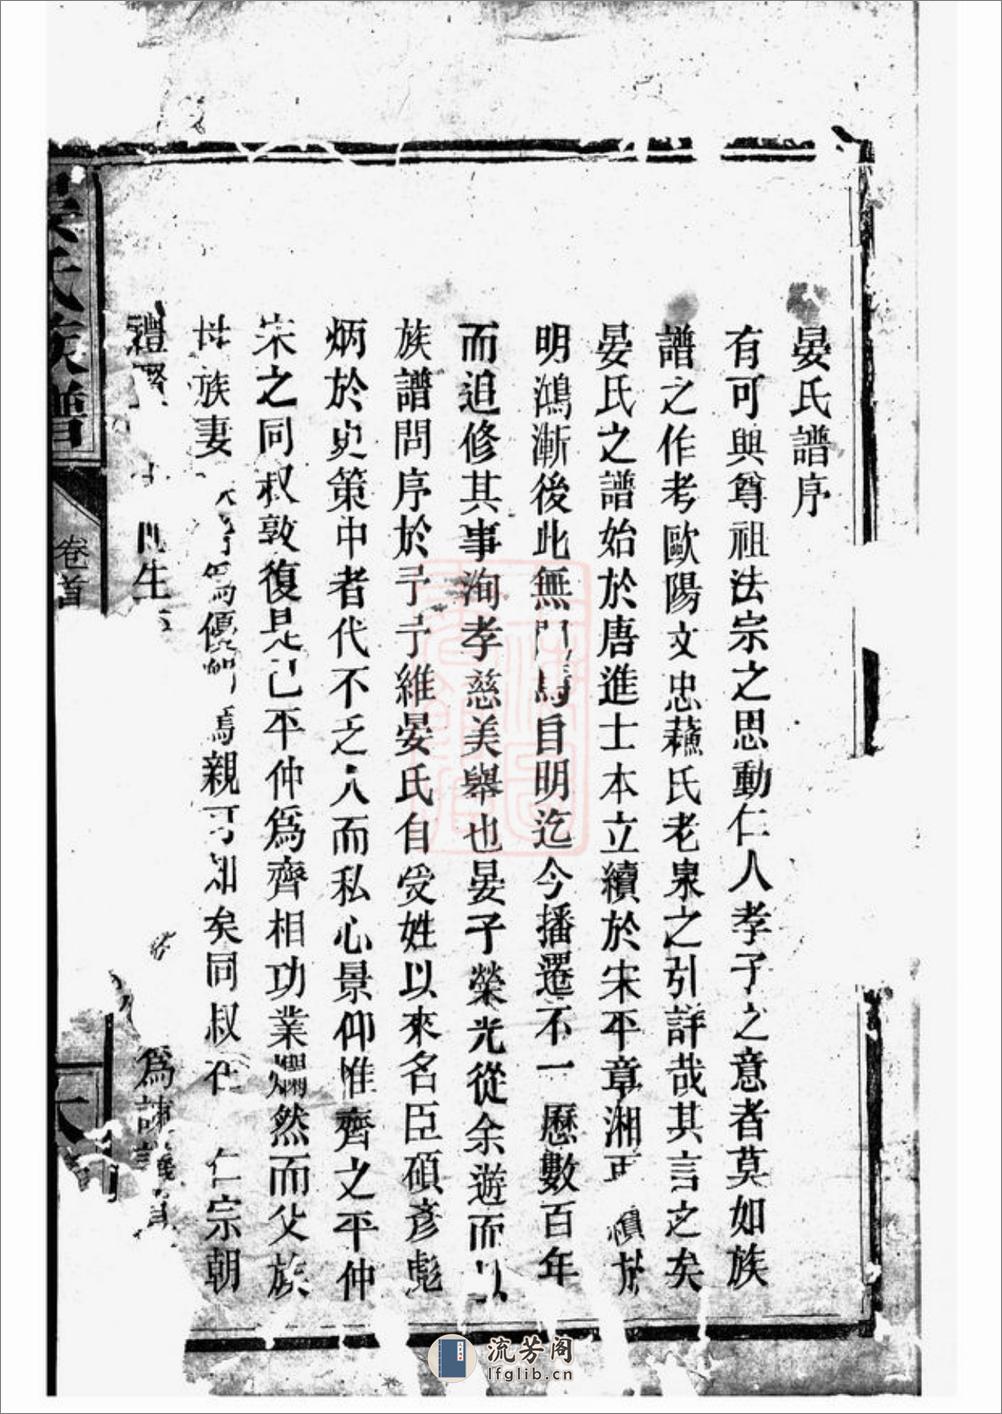 晏氏譜序
有可與尊祖法宗之思動仁人孝子之意者莫如族
譜之作考歐陽文忠蘓氏老泉之引詳哉其言之矣
晏氏之譜始於唐進士本立續於宋平章湘再續於
明鴻漸後此無聞焉自明迄今播遷不一歷數百年
而追修其事洵孝慈美舉也晏子榮光從余遊而以
族譜問序於予予維晏氏自受姓以來名臣碩彥彪
炳於史策中者代不乏人而私心景仰惟齊之平仲
宋之同叔敦復是已平仲爲齊相功業爛然而父族
母族妻 爲優 焉親可知矣同叔在 仁宗朝
禮賢 士 生 爲諫議
晏氏族譜
卷首
流芳阁
lfglib.cn